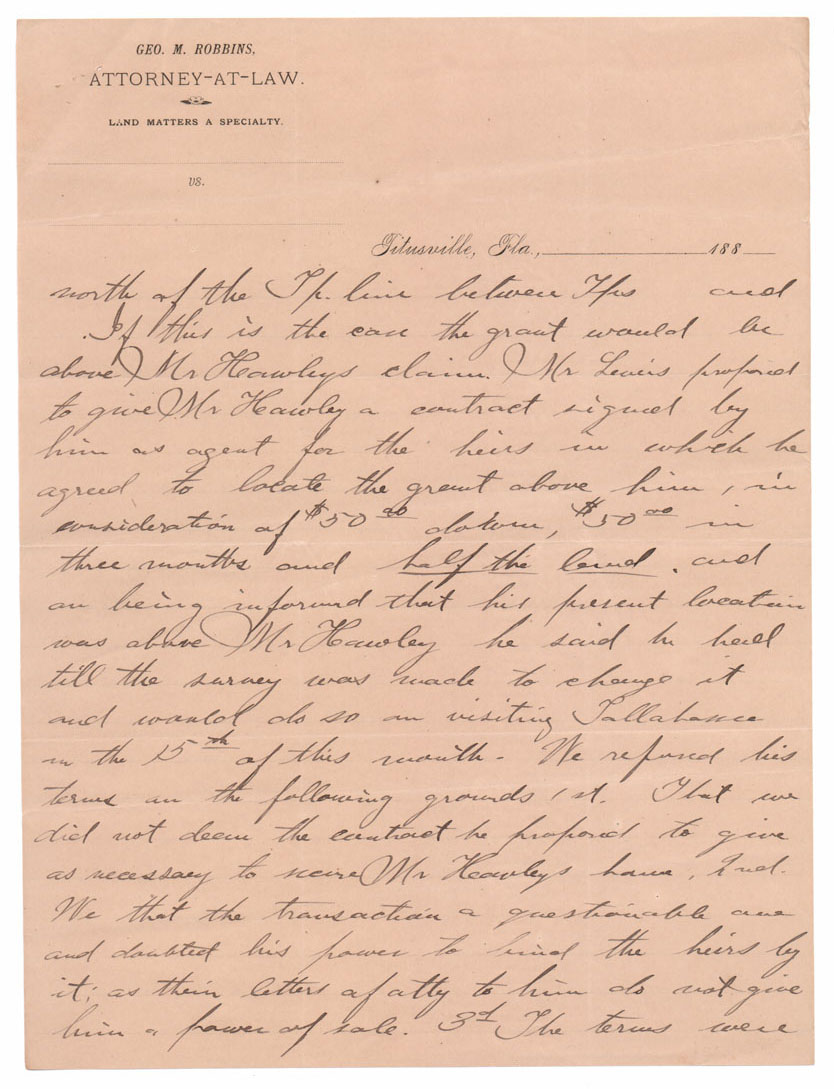 GEO. M. ROBBINS,
ATTORNEY-AT-LAW.
LAND MATTERS A SPECIALTY.
vs.
Titusville, Fla., 188
north of the Tp. line between Tps and
. If this is the case the grant would be
above Mr Hawleys claim. Mr Lewis proposed
to give Mr Hawley a contract signed by
him as agent for the heirs in which he
agreed to locate the grant above him, in
consideration of $50 00 down, $50 00 in
three months and half the land. and
on being informed that his present location
was above Mr Hawley he said he had
till the survey was made to change it
and would do so on visiting Tallahassee
on the 15th of this month. We refused his
terms on the following grounds 1st. That we
did not deem the contract he proposed to give
as necessary to secure Mr Hawleys home, 2nd.
We that the transaction a questionable one
and doubted his power to bind the heirs by
it; as their letters of atty to him do not give
him a power of sale. 3d The terms were